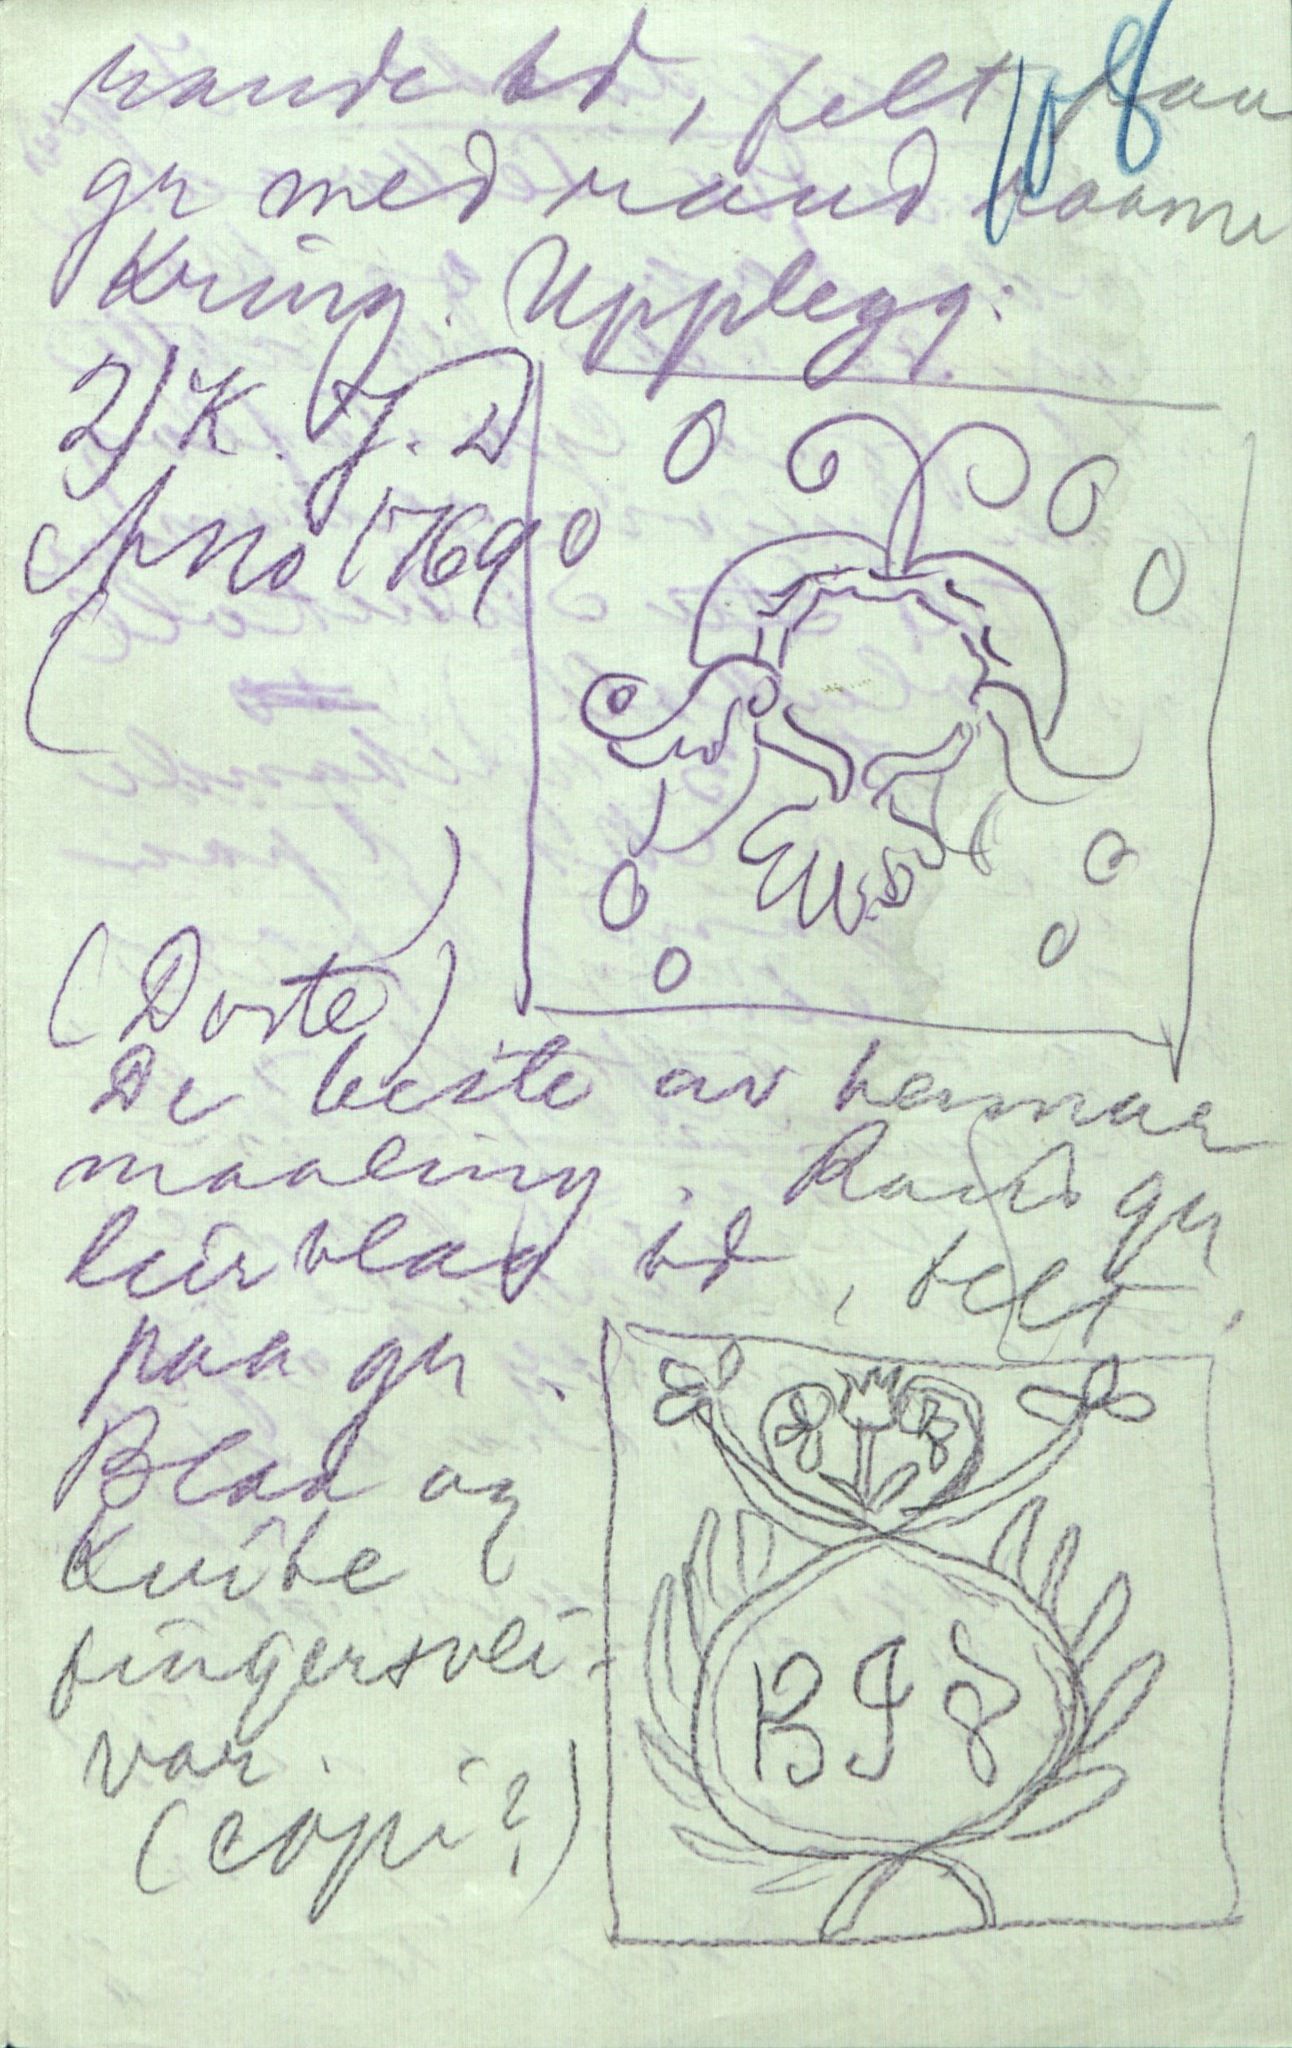 108
raude bd, felt paa
gr med raud raame
Kring. Upplegg:
2) K. J. D
Anno 1769
(Dorte)
De beste av hennar
maaling. Raud gr
leirblaa bd, felt
paa gr.
Blaa og
Kvite
fingersvei-
var.
(copi?)
B J S